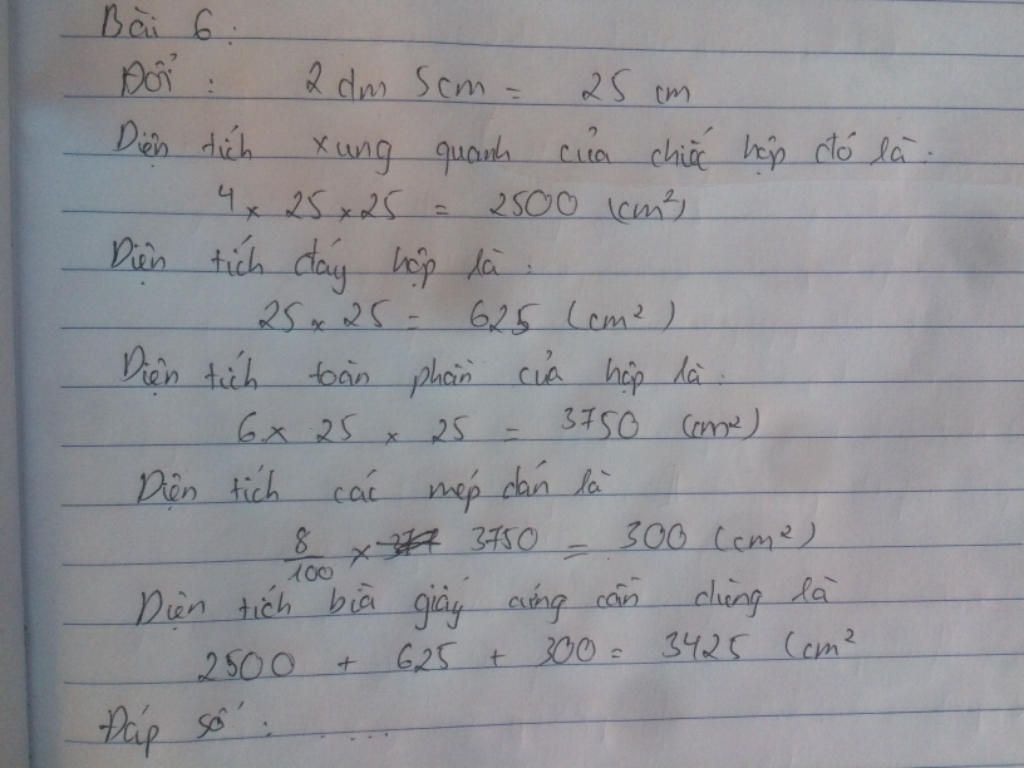 Bài 6:
Đổi: 2 dm 5cm = 25 cm
Diện tích xung quanh của chiếc hộp đó là:
4 x 25 x 25 = 2500 (cm²)
Diện tích đáy hộp là:
25 x 25 = 625 (cm²)
Diện tích toàn phần của hộp là:
6 x 25 x 25 = 3750 (cm²)
Diện tích các mép dán là
8/100 x 3750 = 300 (cm²)
Diện tích bìa giấy cứng cần dùng là
2500 + 625 + 300 = 3425 (cm²
Đáp số: ....